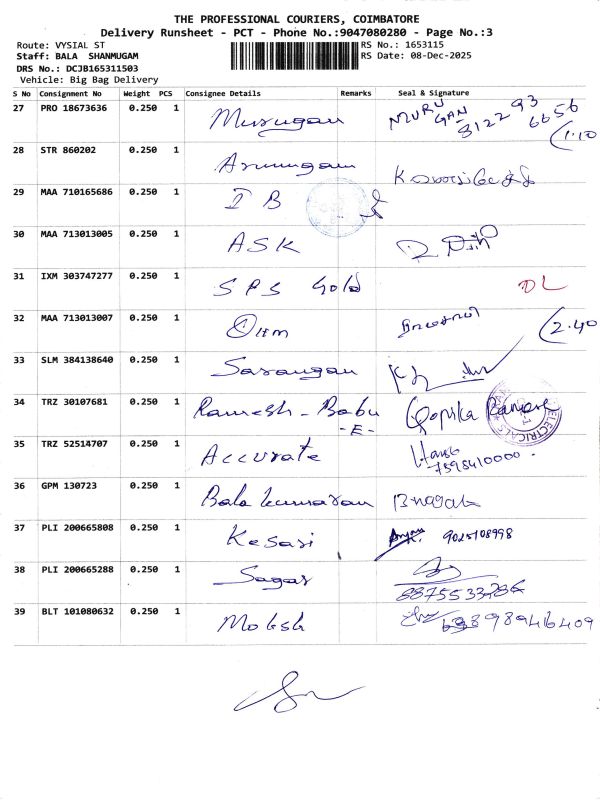 THE PROFESSIONAL COURIERS, COIMBATORE
Delivery Runsheet - PCT - Phone No.:9047080280 - Page No.:3
Route: VYSIAL ST RS No.: 1653115
Staff: BALA SHANMUGAM RS Date: 08-Dec-2025
DRS No.: DCJB165311503
Vehicle: Big Bag Delivery
S No Consignment No Weight PCS Consignee Details Remarks Seal & Signature
27 PRO 18673636 0.250 1 Murugan MURUGAN 81229 36656 1.10
28 STR 860202 0.250 1 Arumugam
29 MAA 710165686 0.250 1 I B
30 MAA 713013005 0.250 1 ASK
31 IXM 303747277 0.250 1 SPS Gold DL
32 MAA 713013007 0.250 1 Ohm 2.40
33 SLM 384138640 0.250 1 Sarangan
34 TRZ 30107681 0.250 1 Ramesh - Babu -E- Gopika ELECTRICALS
35 TRZ 52514707 0.250 1 Accurate 7598410000
36 GPM 130723 0.250 1 Balakumaran
37 PLI 200665808 0.250 1 Kesari 9025108998
38 PLI 200665288 0.250 1 Sagar
39 BLT 101080632 0.250 1 Moksh